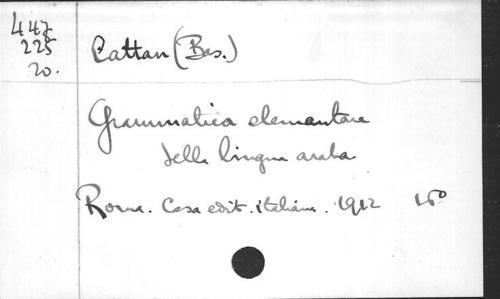 447
225
20.
Cattan (Bas.)
Grammatica elementare
della lingua araba
Roma. Casa edit. italiana. 1912 16º